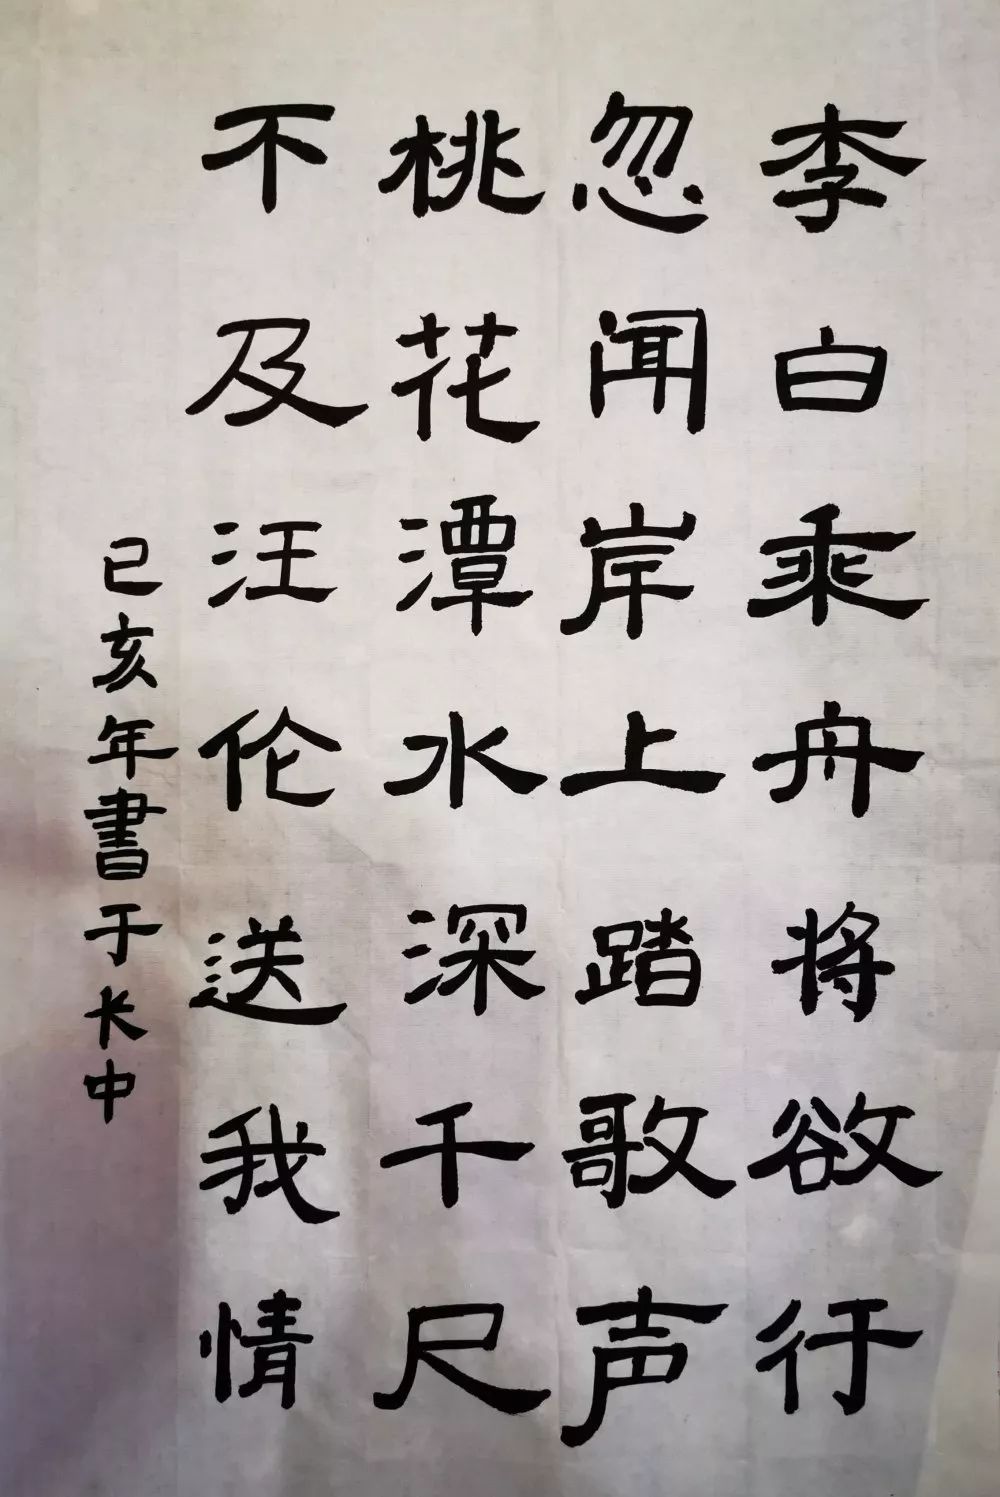 李白乘舟将欲行
忽闻岸上踏歌声
桃花潭水深千尺
不及汪伦送我情
己亥年書于长中